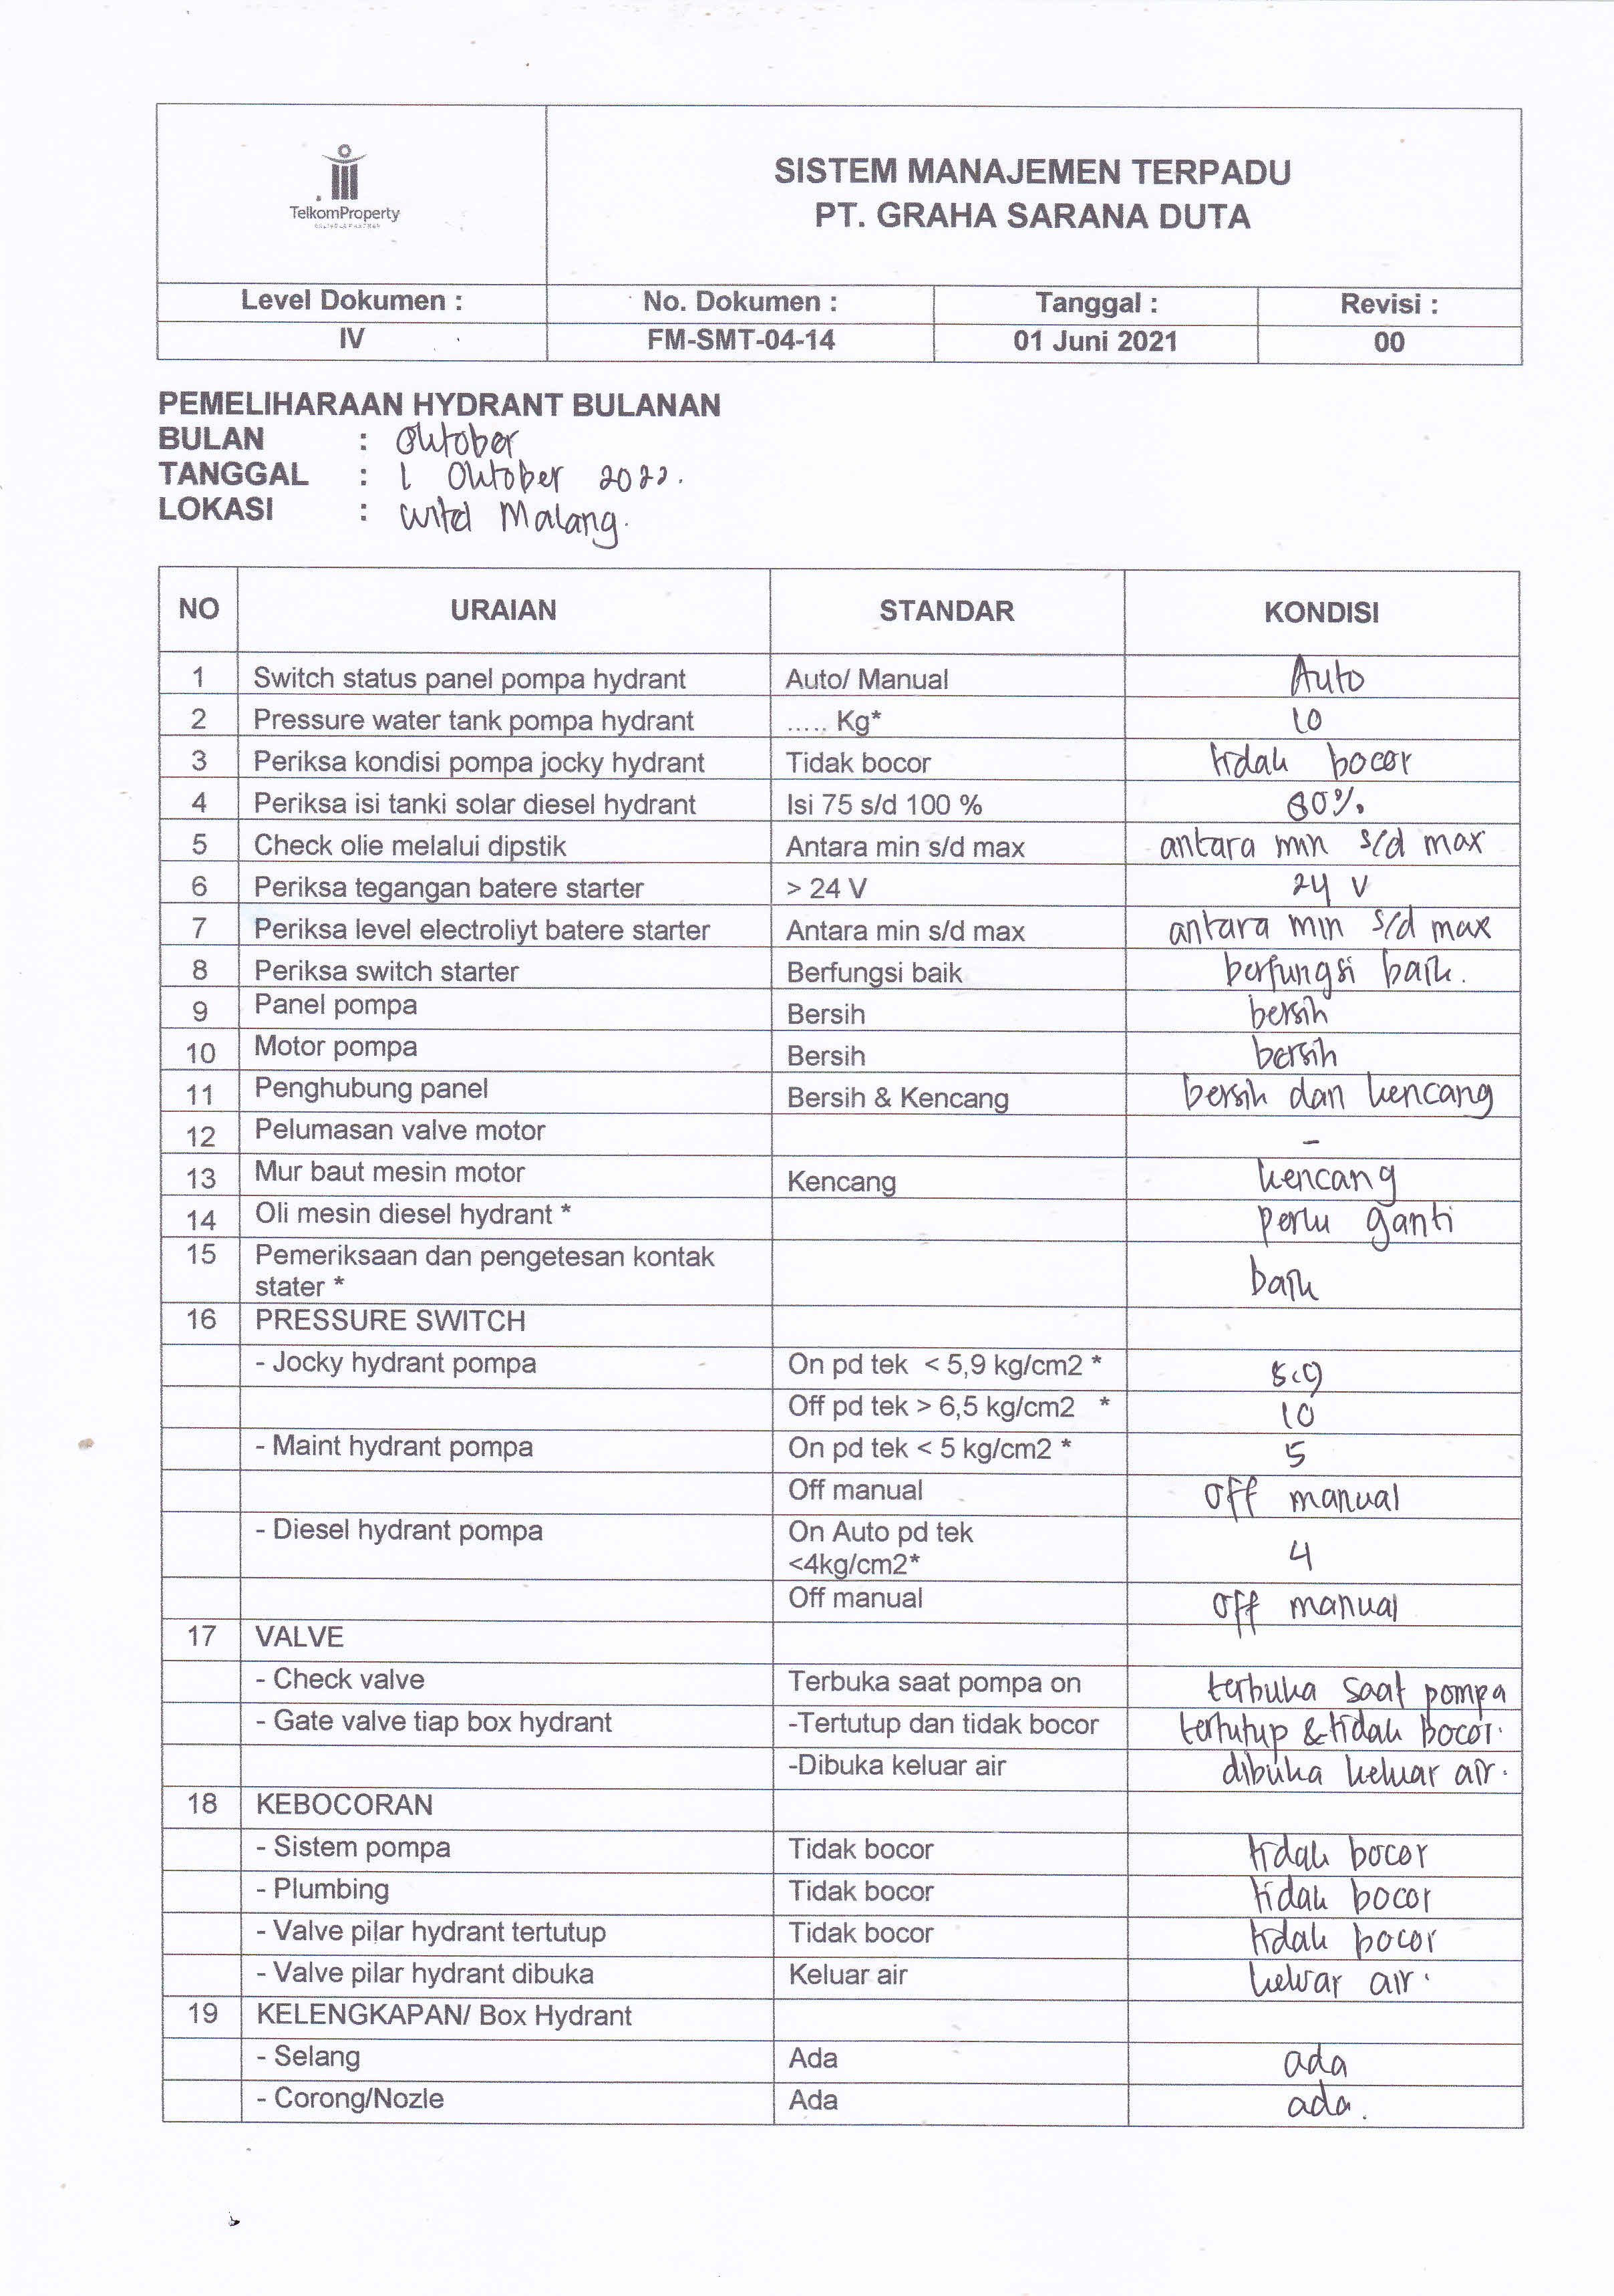 TelkomProperty
SISTEM MANAJEMEN TERPADU
PT. GRAHA SARANA DUTA
Level Dokumen : No. Dokumen : Tanggal : Revisi :
IV FM-SMT-04-14 01 Juni 2021 00
PEMELIHARAAN HYDRANT BULANAN
BULAN : Oktober
TANGGAL : 1 Oktober 2022.
LOKASI : Witel Malang.
NO URAIAN STANDAR KONDISI
1 Switch status panel pompa hydrant Auto/ Manual Auto
2 Pressure water tank pompa hydrant ..... Kg* 10
3 Periksa kondisi pompa jocky hydrant Tidak bocor tidak bocor
4 Periksa isi tanki solar diesel hydrant Isi 75 s/d 100 % 80%
5 Check olie melalui dipstik Antara min s/d max antara min s/d max
6 Periksa tegangan batere starter > 24 V 24 V
7 Periksa level electroliyt batere starter Antara min s/d max antara min s/d max
8 Periksa switch starter Berfungsi baik berfungsi baik.
9 Panel pompa Bersih bersih
10 Motor pompa Bersih bersih
11 Penghubung panel Bersih & Kencang bersih dan kencang
12 Pelumasan valve motor -
13 Mur baut mesin motor Kencang kencang
14 Oli mesin diesel hydrant * perlu ganti
15 Pemeriksaan dan pengetesan kontak
stater * baik
16 PRESSURE SWITCH
- Jocky hydrant pompa On pd tek < 5,9 kg/cm2 * 5,9
Off pd tek > 6,5 kg/cm2 * 10
- Maint hydrant pompa On pd tek < 5 kg/cm2 * 5
Off manual off manual
- Diesel hydrant pompa On Auto pd tek
<4kg/cm2* 4
Off manual off manual
17 VALVE
- Check valve Terbuka saat pompa on terbuka saat pompa
- Gate valve tiap box hydrant -Tertutup dan tidak bocor tertutup & tidak bocor.
-Dibuka keluar air dibuka keluar air.
18 KEBOCORAN
- Sistem pompa Tidak bocor tidak bocor
- Plumbing Tidak bocor tidak bocor
- Valve pilar hydrant tertutup Tidak bocor tidak bocor
- Valve pilar hydrant dibuka Keluar air keluar air.
19 KELENGKAPAN/ Box Hydrant
- Selang Ada ada
- Corong/Nozle Ada ada.